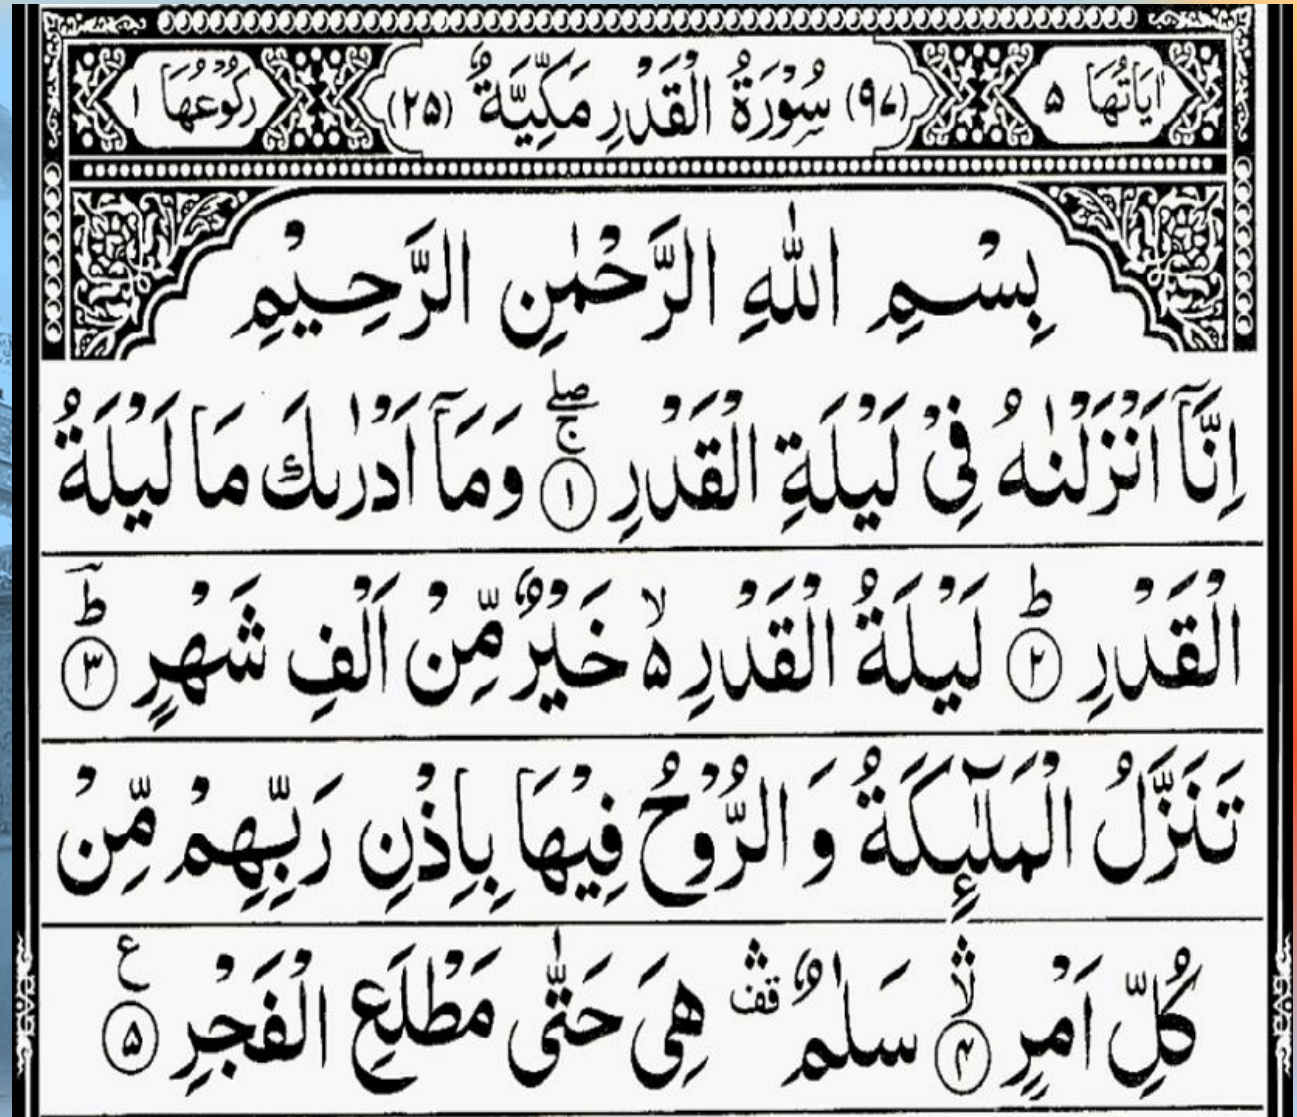 اٰیَاتُهَا ۵ (۹۷) سُوْرَةُ الْقَدْرِ مَكِّیَّةٌ (۲۵) رُكُوْعُهَا ۱
بِسْمِ اللّٰهِ الرَّحْمٰنِ الرَّحِیْمِ
اِنَّاۤ اَنْزَلْنٰهُ فِیْ لَیْلَةِ الْقَدْرِ ۚۖ ۱ وَمَاۤ اَدْرٰىكَ مَا لَیْلَةُ
الْقَدْرِ ؕ ۲ لَیْلَةُ الْقَدْرِ ۙ۵ خَیْرٌ مِّنْ اَلْفِ شَهْرٍ ؕؔ ۳
تَنَزَّلُ الْمَلٰٓىِٕكَةُ وَ الرُّوْحُ فِیْهَا بِاِذْنِ رَبِّهِمْ مِّنْ
كُلِّ اَمْرٍ ۙۛ ۴ سَلٰمٌ ۛ قف هِیَ حَتّٰى مَطْلَعِ الْفَجْرِ ع ۵